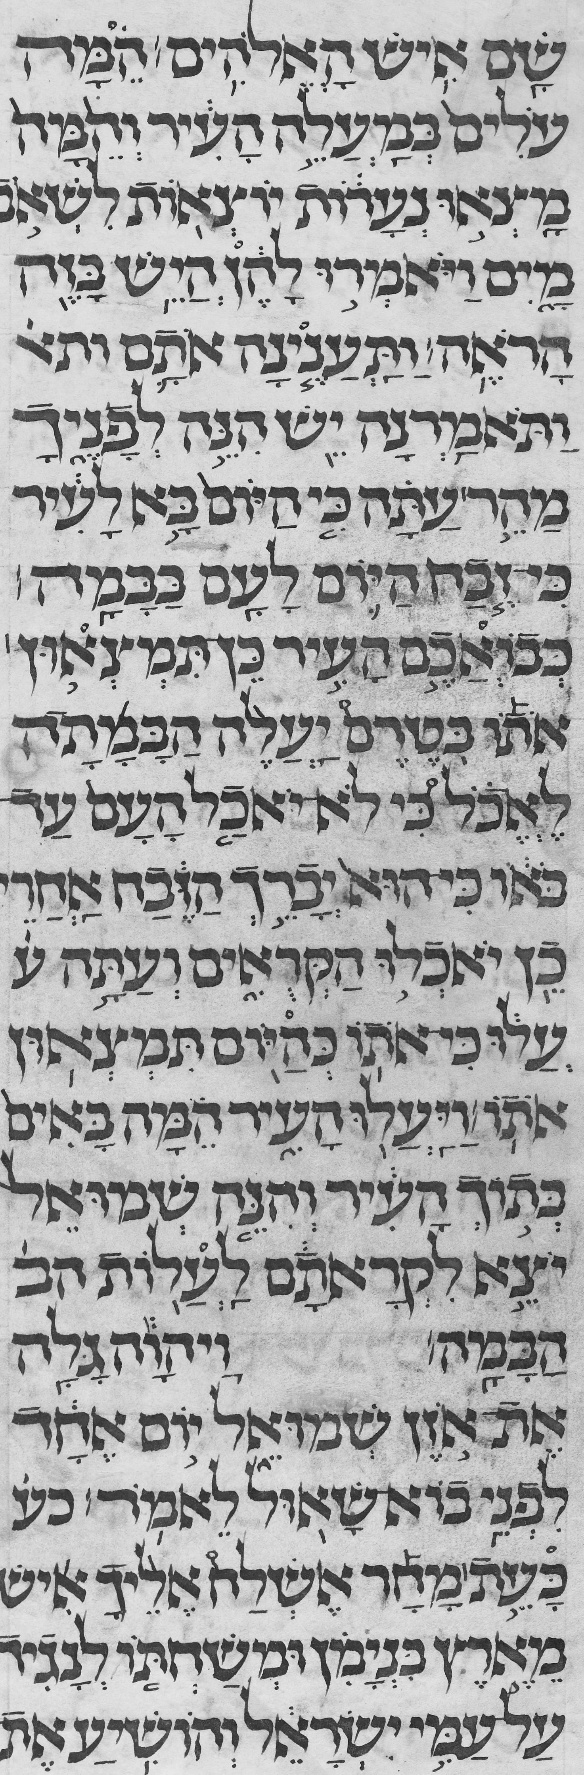 שָׁם אִישׁ הָאֱלֹהִים׃ הֵמָּה
עֹלִים בְּמַעֲלֵה הָעִיר וְהֵמָּה
מָצְאוּ נְעָרוֹת יֹצְאוֹת לִשְׁאֹב
מָיִם וַיֹּאמְרוּ לָהֶן הֲיֵשׁ בָּזֶה
הָרֹאֶה׃ וַתַּעֲנֶינָה אֹתָם ותא
וַתֹּאמַרְנָה יֵשׁ הִנֵּה לְפָנֶיךָ
מַהֵר עַתָּה כִּי הַיּוֹם בָּא לָעִיר
כִּי זֶבַח הַיּוֹם לָעָם בַּבָּמָה׃
כְּבֹואֲכֶם הָעִיר כֵּן תִּמְצְאוּן
אֹתוֹ בְּטֶרֶם יַעֲלֶה הַבָּמָתָה
לֶאֱכֹל כִּי לֹא יֹאכַל הָעָם עַד
בֹּאוֹ כִּי הוּא יְבָרֵךְ הַזֶּבַח אַחֲרֵי
כֵן יֹאכְלוּ הַקְּרֻאִים וְעַתָּה ע
עֲלוּ כִּי אֹתוֹ כְּהַיּוֹם תִּמְצְאוּן
אֹתוֹ׃ וַיַּעֲלוּ הָעִיר הֵמָּה בָּאִים
בְּתוֹךְ הָעִיר וְהִנֵּה שְׁמוּאֵל
יֹצֵא לִקְרָאתָם לַעֲלוֹת הב
הַבָּמָה׃ וַיהוָה גָּלָה
אֶת אֹזֶן שְׁמוּאֵל יוֹם אֶחָד
לִפְנֵי בוֹא שָׁאוּל לֵאמֹר׃ כע
כָּעֵת מָחָר אֶשְׁלַח אֵלֶיךָ אִישׁ
מֵאֶרֶץ בִּנְיָמִן וּמְשַׁחְתּוֹ לְנָגִיד
עַל עַמִּי יִשְׂרָאֵל וְהוֹשִׁיעַ אֶת